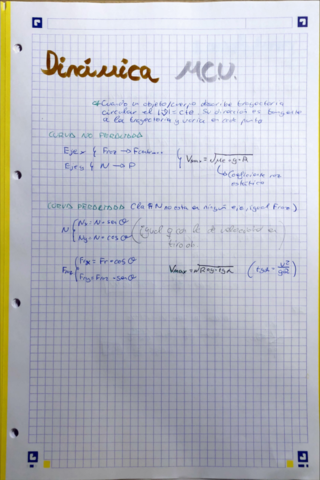 Dinámica MCU.
Cuando un objeto/cuerpo describe trayectoria
circular el |v| = cte. Su dirección es tangente
a la trayectoria y varía en cada punto
CURVA NO PERALTADA
Eje x { Froz → Fcentrip
Eje y { N → P
{ Vmax = √μe·g·R
Coeficiente roz
estático
CURVA PERALTADA (la N no esta en ningún eje, igual Froz).
N { Nx = N·senθ
Ny = N·cosθ
(Igual q con la de
Froz { Frx = Fr·cosθ
Fry = Froz·senθ
Vmax = √R·g·tgα
(tgα = v²/gR)